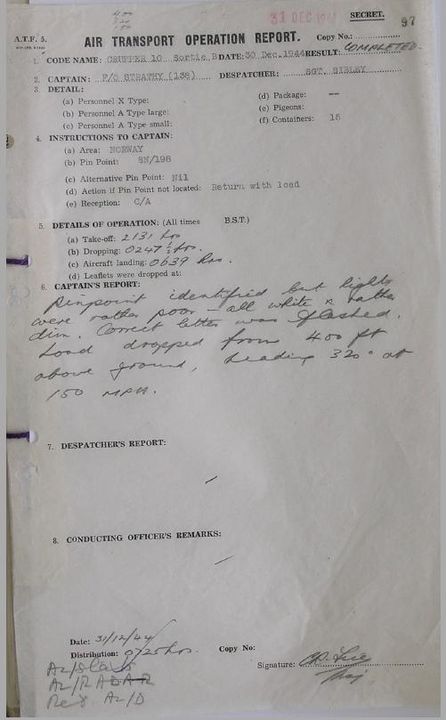 31 DEC 194
SECRET.
97
A.T.F. 5.
AIR TRANSPORT OPERATION REPORT.
Copy No.:
1. CODE NAME: CRUPPER 10 Sortie B DATE: 30 Dec. 1944 RESULT: COMPLETED.
2. CAPTAIN: F/O STRATHY (138) DESPATCHER: SGT. SIBLEY
3. DETAIL:
(a) Personnel X Type:
(d) Package: —
(b) Personnel A Type large:
(e) Pigeons:
(c) Personnel A Type small:
(f) Containers: 18
4. INSTRUCTIONS TO CAPTAIN:
(a) Area: NORWAY
(b) Pin Point: SN/198
(c) Alternative Pin Point: Nil
(d) Action if Pin Point not located: Return with load
(e) Reception: C/A
5. DETAILS OF OPERATION: (All times B.S.T.)
(a) Take-off: 2131 hrs
(b) Dropping: 0247½ hrs.
(c) Aircraft landing: 0639 hrs.
(d) Leaflets were dropped at:
6. CAPTAIN'S REPORT:
Pinpoint identified but lights
were rather poor - all white & rather
dim. Correct letter was flashed.
Load dropped from 400 ft
above ground, heading 320° at
150 MPH.
7. DESPATCHER'S REPORT:
8. CONDUCTING OFFICER'S REMARKS:
Date: 31/12/44
Distribution: 0725 hrs.
Copy No:
Signature:
Maj
AL/
AL/RADAR
AL/D